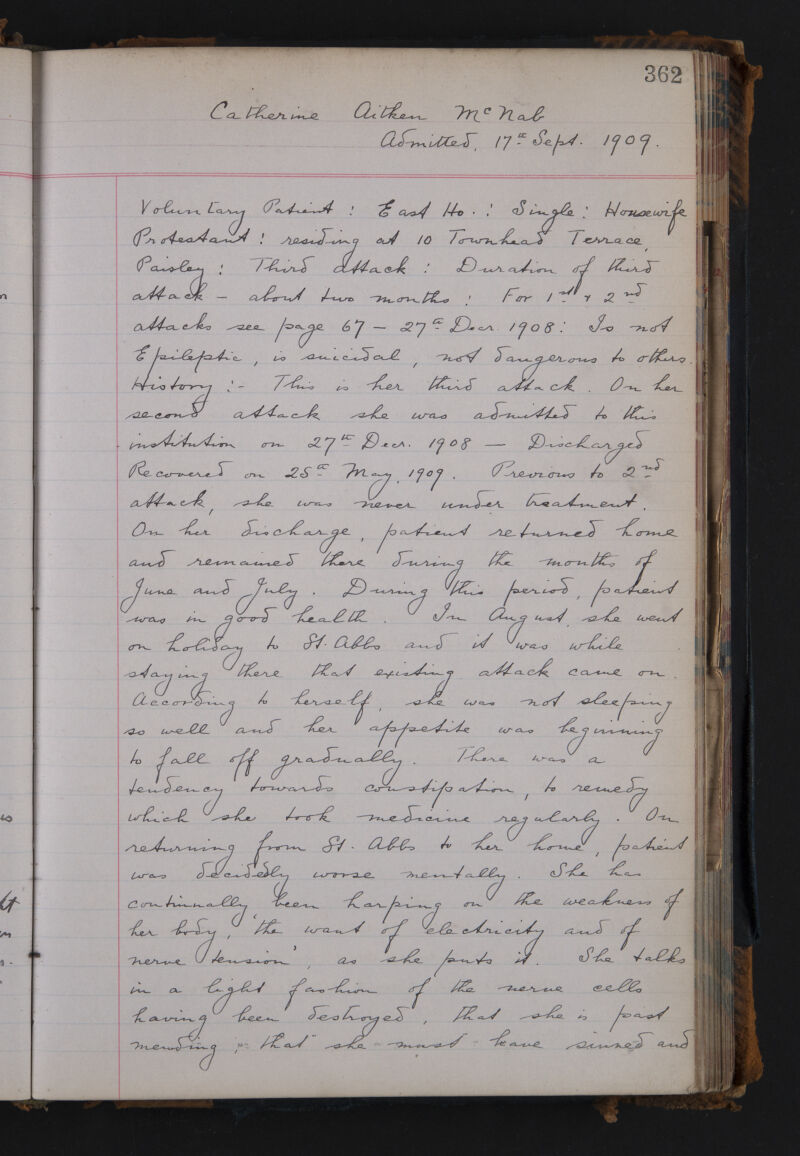 362
Catherine Aitken McNab
Admitted, 17th Sept. 1909.
Voluntary Patient : East Ho. : Single : Housewife
Protestant : residing at 10 Townhead Terrace,
Paisley : Third attack : Duration of third
attack – about two months : For 1st & 2nd
attacks see page 67 – 27th Decr. 1908 : Is not
Epileptic, is suicidal, not dangerous to others.
History :- This is her third attack. On her
second attack she was admitted to this
institution on 27th Decr. 1908 — Discharged
Recovered on 25th May, 1909. Previous to 2nd
attack, she was never under treatment.
On her discharge, patient returned home
and remained there during the months of
June and July. During this period, patient
was in good health. In August, she went
on holiday to St. Abbs and it was while
staying there that existing attack came on.
According to herself, she was not sleeping
so well and her appetite was beginning
to fall off gradually. There was a
tendency towards constipation, to remedy
which she took medicine regularly. On
returning from St. Abbs to her home, patient
was decidedly worse mentally. She has
continually been harping on the weakness of
her body, 'the want of electricity and of
nerve tension', as she puts it. She talks
in a light fashion of the nerve cells
having been destroyed, that she is past
mending, that she must have sinned and